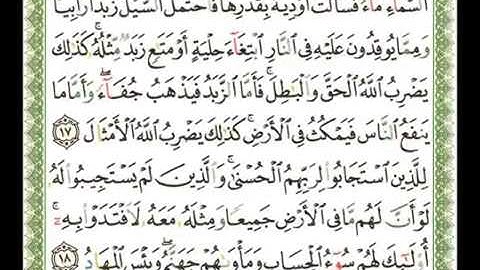 ٱلسَّمَآءِ مَآءً فَسَالَتْ أَوْدِيَةُۢ بِقَدَرِهَا فَٱحْتَمَلَ ٱلسَّيْلُ زَبَدًا رَّابِيًا
وَمِمَّا يُوقِدُونَ عَلَيْهِ فِى ٱلنَّارِ ٱبْتِغَآءَ حِلْيَةٍ أَوْ مَتَٰعٍ زَبَدٌ مِّثْلُهُۥ ۚ كَذَٰلِكَ
يَضْرِبُ ٱللَّهُ ٱلْحَقَّ وَٱلْبَٰطِلَ ۚ فَأَمَّا ٱلزَّبَدُ فَيَذْهَبُ جُفَآءً ۖ وَأَمَّا مَا
يَنفَعُ ٱلنَّاسَ فَيَمْكُثُ فِى ٱلْأَرْضِ ۚ كَذَٰلِكَ يَضْرِبُ ٱللَّهُ ٱلْأَمْثَالَ ١٧
لِلَّذِينَ ٱسْتَجَابُوا۟ لِرَبِّهِمُ ٱلْحُسْنَىٰ ۚ وَٱلَّذِينَ لَمْ يَسْتَجِيبُوا۟ لَهُۥ
لَوْ أَنَّ لَهُم مَّا فِى ٱلْأَرْضِ جَمِيعًا وَمِثْلَهُۥ مَعَهُۥ لَٱفْتَدَوْا۟ بِهِۦٓ ۚ
أُو۟لَٰٓئِكَ لَهُمْ سُوٓءُ ٱلْحِسَابِ وَمَأْوَىٰهُمْ جَهَنَّمُ ۖ وَبِئْسَ ٱلْمِهَادُ ١٨